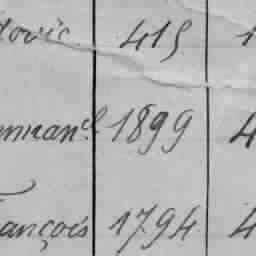 dovic 415 1
mman^el 1899 4
ançois 1794 4